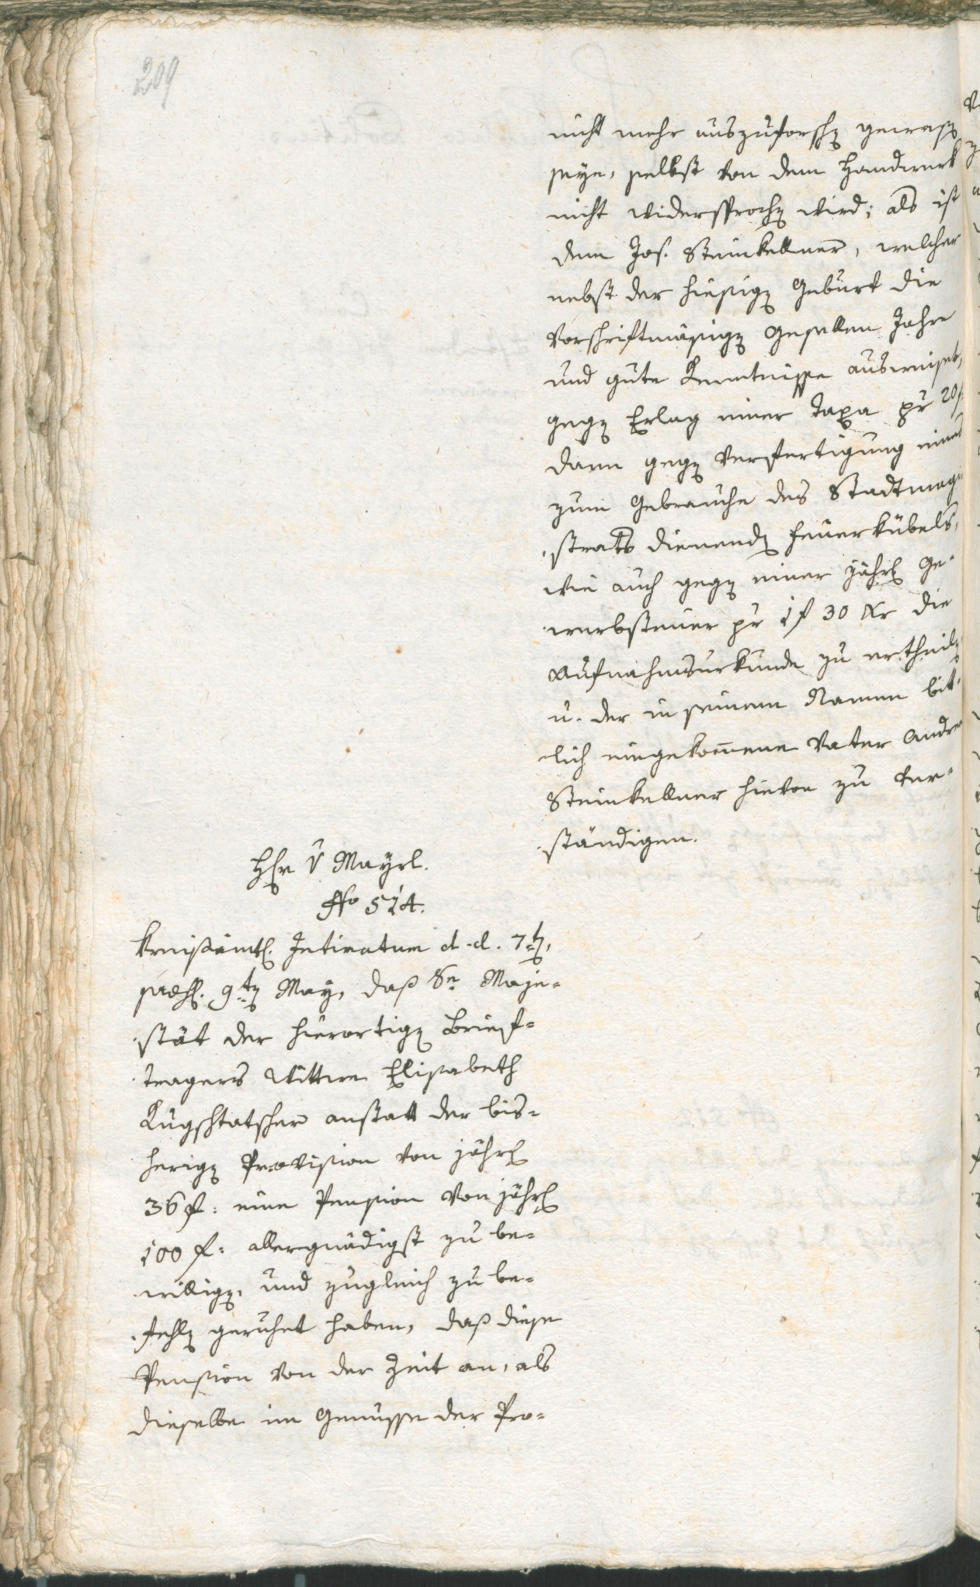 209
nicht mehr auszuforschen gewesen
seye, selbst von dem Handwerk
nicht widersprochen wird; als ist
dem Jos. Steinkellner, welcher
nebst der hiesigen Geburt die
Vorschriftmäsigen Gesellen Jahre
und gute Kenntnisse ausweiset,
gegen Erlag einer Taxa pr 20 f
dann gegen Verfertigung eines
zum Gebrauche des Stadtmagi-
strats dienenden Feuerkübels,
wie auch gegen einer jährl Ge-
werbsteuer pr 1 f 30 Xr die
Aufnahmsurkunde zu ertheilen
u. der in seinem Namen bit-
lich eingekomene Vater Andre
Steinkellner hievon zu ver-
ständigen.
Hr v Mayrl.
No 514.
Kreisämtl. Intimatum d. d. 7t.
praes. 9ten May, daß Se Maje-
stät der hierortigen Brief-
tragers Wittwe Elisabeth
Kugschtatscher anstatt der bis-
herigen Provision von jährl
36 f: eine Pension von jährl
100 f: allergnädigst zu be-
willigen, und zugleich zu be-
fehlen geruhet haben, daß diese
Pension von der Zeit an, als
dieselbe im Genusse der Pro-